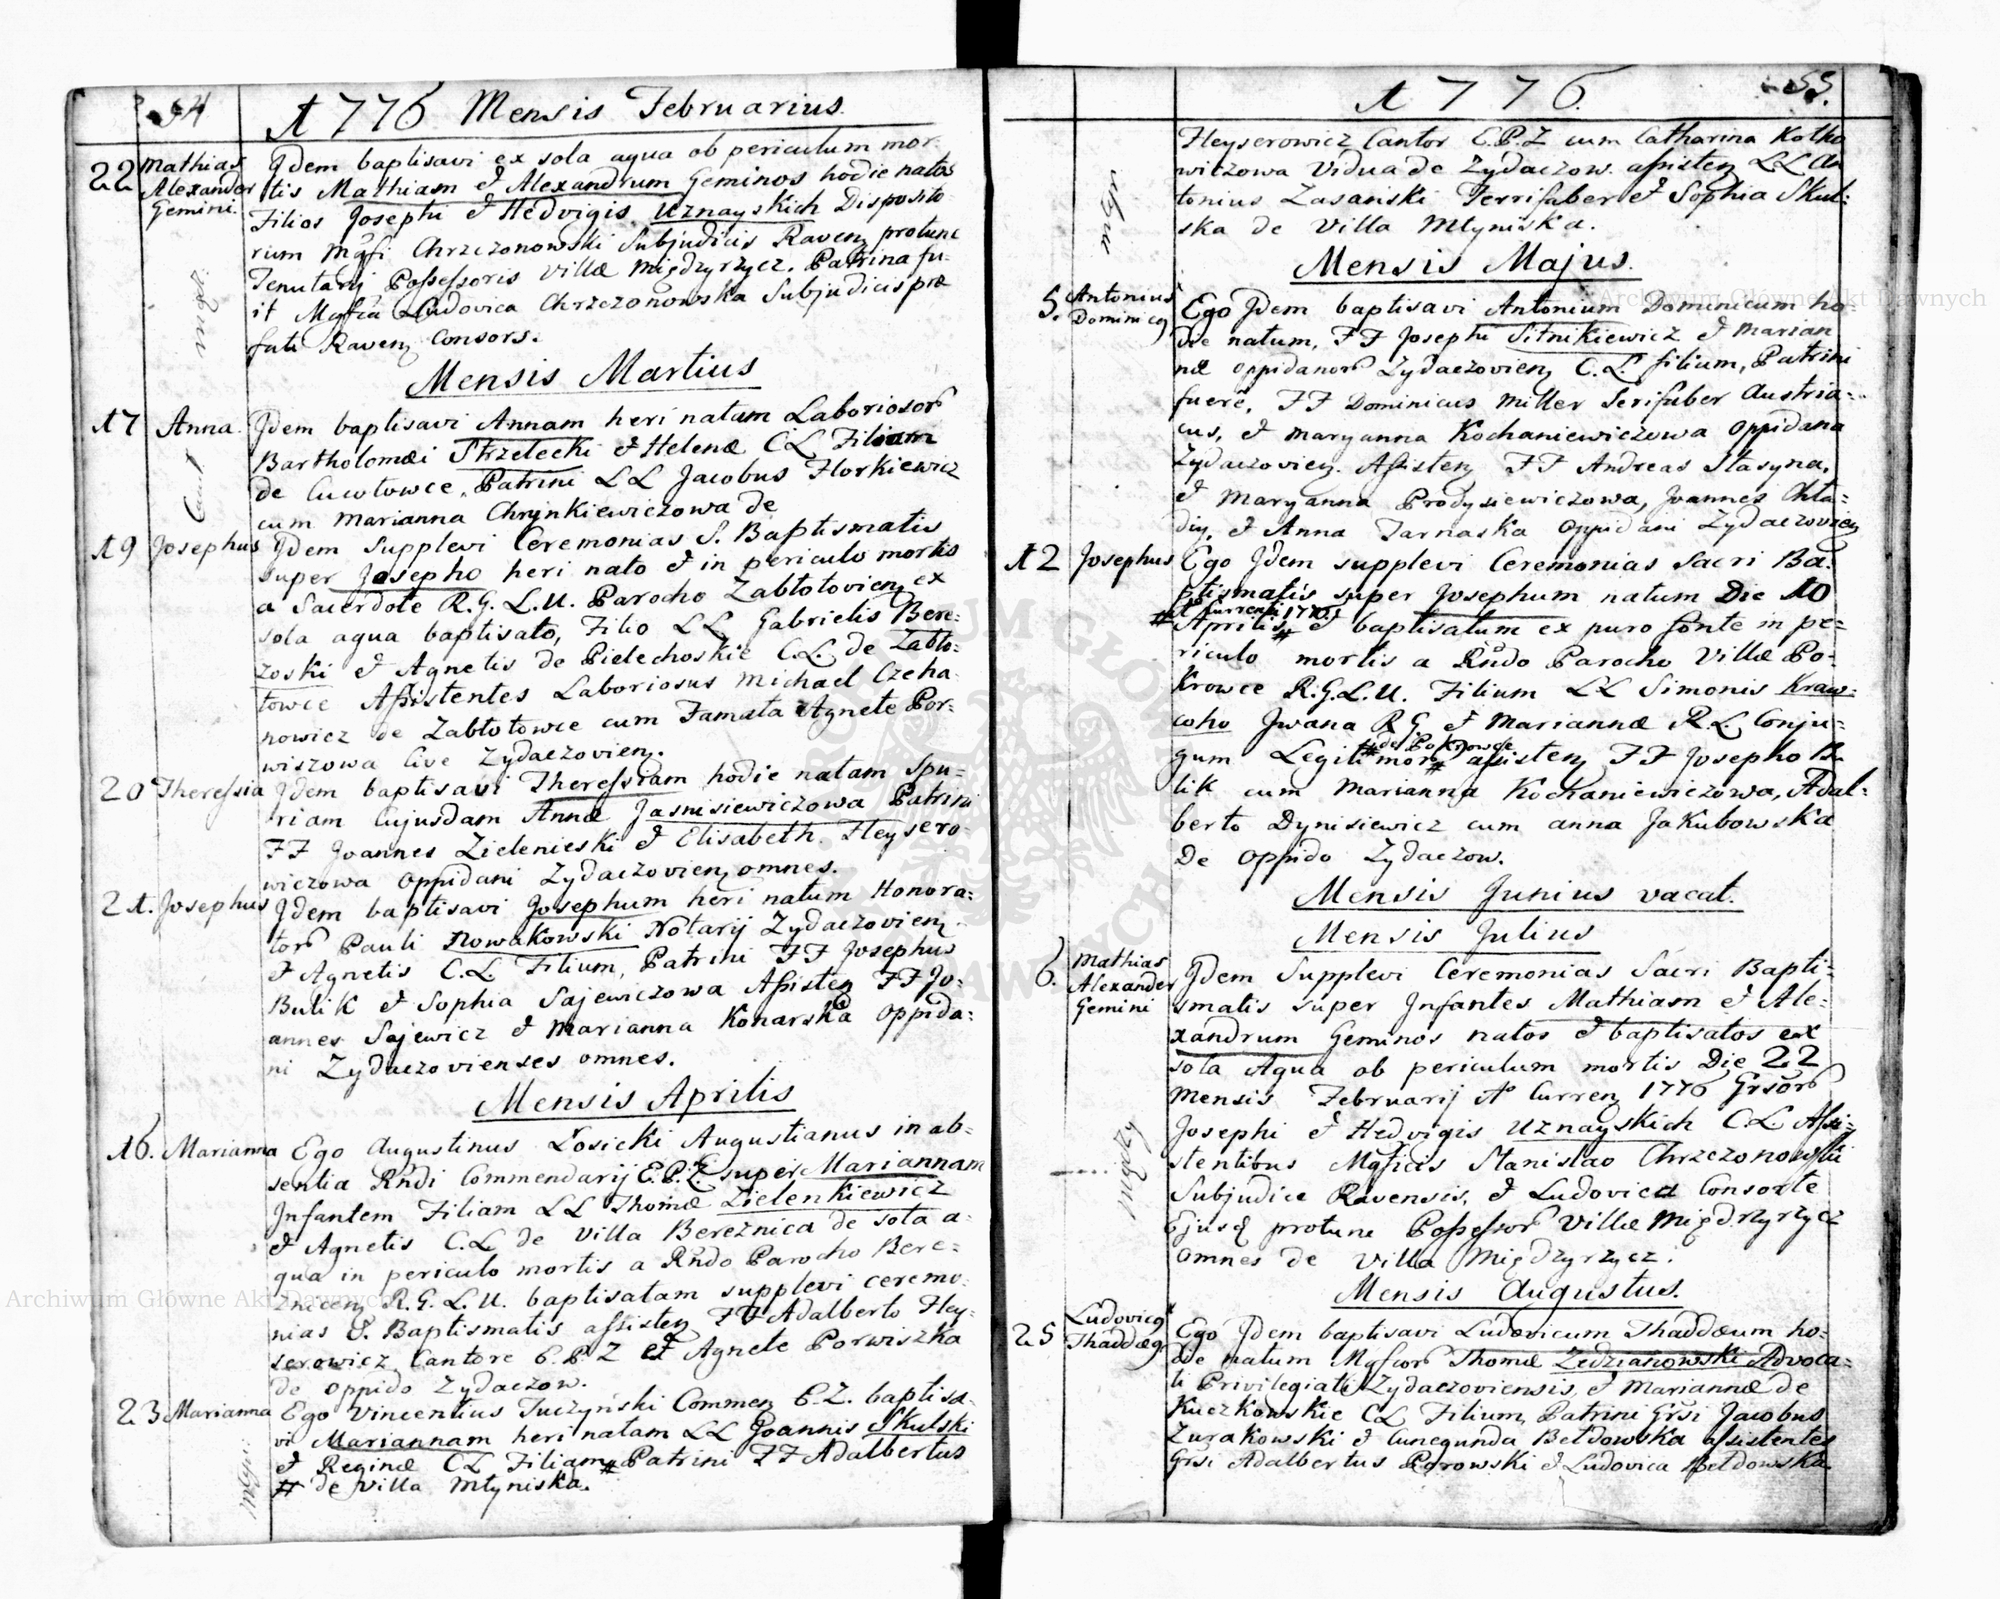 54
1776 Mensis Februarius.
22 Mathias Alexander Gemini.
Idem baptisavi ex sola aqua ob periculum mor
tis Mathiam et Alexandrum Geminos hodie natos
Filios Josephi et Hedvigis Uznayskich Disposito
rium Mgfi Chrzczonowski Subjudicis Raven protunc
Tenutarij Possessoris Villæ Międzyrzycz. Patrina fu-
it Mgfica Ludovica Chrzczonowska Subjudicis præ
fati Raven Consors.
Mensis Martius
17 Anna.
Idem baptisavi Annam heri natam Laborioror
Bartholomæi Strzelecki et Helenæ C.L. Filiam
de Cucułowce, Patrini LL Jacobus Florkiewicz
cum Marianna Chrynkiewiczowa de
19 Josephus
Idem Supplevi Ceremonias S. Baptismatis
super Josepho heri nato et in periculo mortis
a Sacerdote R.G.L.U. Parocho Zabłotovien ex
sola aqua baptisato, Filio LL Gabrielis Bere-
zoski et Agnetis de Pielechoskie C.L. de Zabło-
towce Assistentes Laboriosus Michael Czeha-
nowicz de Zabłotowce cum Famata Agnete Por-
wiszowa Cive Zydaczovien.
20 Theressia
Idem baptisavi Theressiam hodie natam spu-
riam Cujusdam Annæ Jasnisiewiczowa Patrini
FF Joannes Zielenieski et Elisabeth Heysero-
wiczowa Oppidani Zydaczovien omnes.
21. Josephus
Idem baptisavi Josephum heri natum Honora-
tor Pauli Nowakowski Notarij Zydaczovien
et Agnetis C.L. Filium, Patrini FF Josephus
Bulik et Sophia Sajewiczowa Assisten FF Jo-
annes Sajewicz et Marianna Konarska Oppida-
ni Zydaczovienses omnes.
Mensis Aprilis
16. Marianna
Ego Augustinus Łosicki Augustianus in ab-
sentia Rndi Commendarij E.P.Z. super Mariannam
Infantem Filiam LL Thomæ Zielenkiewicz
et Agnetis C.L de Villa Bereznica de sola a-
qua in periculo mortis a Rndo Parocho Bere-
znicen R.G.L.U. baptisatam supplevi ceremo-
nias S. Baptismatis assisten FF Adalberto Hey-
serowicz Cantore E.P.Z et Agnete Porwiszka
de Oppido Zydaczow.
23 Marianna
Ego Vincentius Tuczyński Commen E.Z. baptisa-
vi Mariannam heri natam LL Joannis Skulski
et Reginæ CL Filiam # Patrini FF Adalbertus
# de Villa Młyniska.
55.
1776.
Heyserowicz Cantor E.P.Z cum Catharina Kotko
wiczowa Vidua de Zydaczow. assisten LL An
tonius Zasanski Ferrifaber et Sophia Skul-
ska de Villa Młyniska.
Mensis Majus.
5. Antonius Dominicq
Ego Idem baptisavi Antonium Dominicum ho-
die natum, FF Josephi Sitnikiewicz et Marian
næ Oppidanor Zydaczovien C.L. filium, Patrini
fuere, FF Dominicus Miller Serifaber Austria-
cus, et Maryanna Kochaniewiczowa Oppidana
Zydaczovien. Assisten FF Andreas Stasyna,
et Maryanna Prodysiewiczowa, Joannes Chła-
diy, et Anna Tarnaska Oppidani Zydaczovien
12 Josephus
Ego Idem supplevi Ceremonias Sacri Ba-
ptismatis super Josephum natum Die 10
# Aprilis # et baptisatum ex puro fonte in pe-
# Currenti 1776
riculo mortis a Rndo Parocho Villæ Po-
krowce R.G.L.U. Filium LL Simonis Kraw-
coho Jwana R.G. et Mariannæ R.L. Conju-
gum Legitimor # assisten FF Josepho Bu
# de Pokrowce
lik cum Marianna Kochaniewiczowa, Adal-
berto Dynisiewicz cum Anna Jakubowska
De Oppido Zydaczow.
Mensis Junius vacat.
Mensis Julius
6. Mathias Alexander Gemini
Idem Supplevi Ceremonias Sacri Bapti-
smatis super Infantes Mathiam et Ale-
xandrum Geminos natos et baptisatos ex
sola Aqua ob periculum mortis Die 22
Mensis Februarij A Curren 1776 Grsor
Josephi et Hedvigis Uznayskich C.L. Assi-
stentibus Mgficis Stanislao Chrzczonowski
Subjudice Ravensis, et Ludovica Consorte
Ejusq protunc Possessor Villæ Międzyrzycz
omnes de Villa Międzyrzycz.
Mensis Augustus.
25 Ludovicq Thaddæq
Ego Idem baptisavi Ludovicum Thaddæum ho-
die natum Mgfcor Thomæ Zedzianowski Advoca-
ti Privilegiati Zydaczoviensis, et Mariannæ de
Kuczkowskie CL Filium, Patrini Grsi Jacobus
Zurakowski et Cunegunda Bełdowska assistentes
Grsi Adalbertus Porowski et Ludovica Bełdowska.
Archiwum Główne Akt Dawnych
Archiwum Główne Akt Dawnych
ARCHIWUM GŁÓWNE AKT DAWNYCH